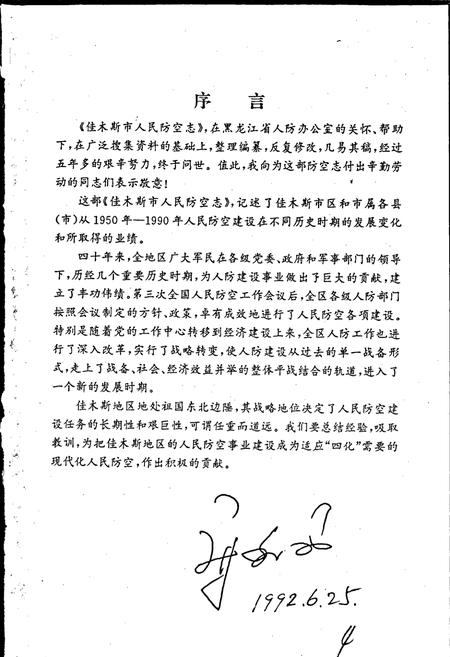 序 言
《佳木斯市人民防空志》,在黑龙江省人防办公室的关怀、帮助
下,在广泛搜集资料的基础上,整理编纂,反复修改,几易其稿,经过
五年多的艰辛努力,终于问世。值此,我向为这部防空志付出辛勤劳
动的同志们表示敬意!
这部《佳木斯市人民防空志》,记述了佳木斯市区和市属各县
(市)从1950年—1990年人民防空建设在不同历史时期的发展变化
和所取得的业绩。
四十年来,全地区广大军民在各级党委、政府和军事部门的领导
下,历经几个重要历史时期,为人防建设事业做出了巨大的贡献,建
立了丰功伟绩。第三次全国人民防空工作会议后,全区各级人防部门
按照会议制定的方针、政策,卓有成效地进行了人民防空各项建设。
特别是随着党的工作中心转移到经济建设上来,全区人防工作也进
行了深入改革,实行了战略转变,使人防建设从过去的单一战备形
式,走上了战备、社会、经济效益并举的整体平战结合的轨道,进入了
一个新的发展时期。
佳木斯地区地处祖国东北边陲,其战略地位决定了人民防空建
设任务的长期性和艰巨性,可谓任重而道远。我们要总结经验,吸取
教训,为把佳木斯地区的人民防空事业建设成为适应“四化”需要的
现代化人民防空,作出积极的贡献。
1992.6.25.